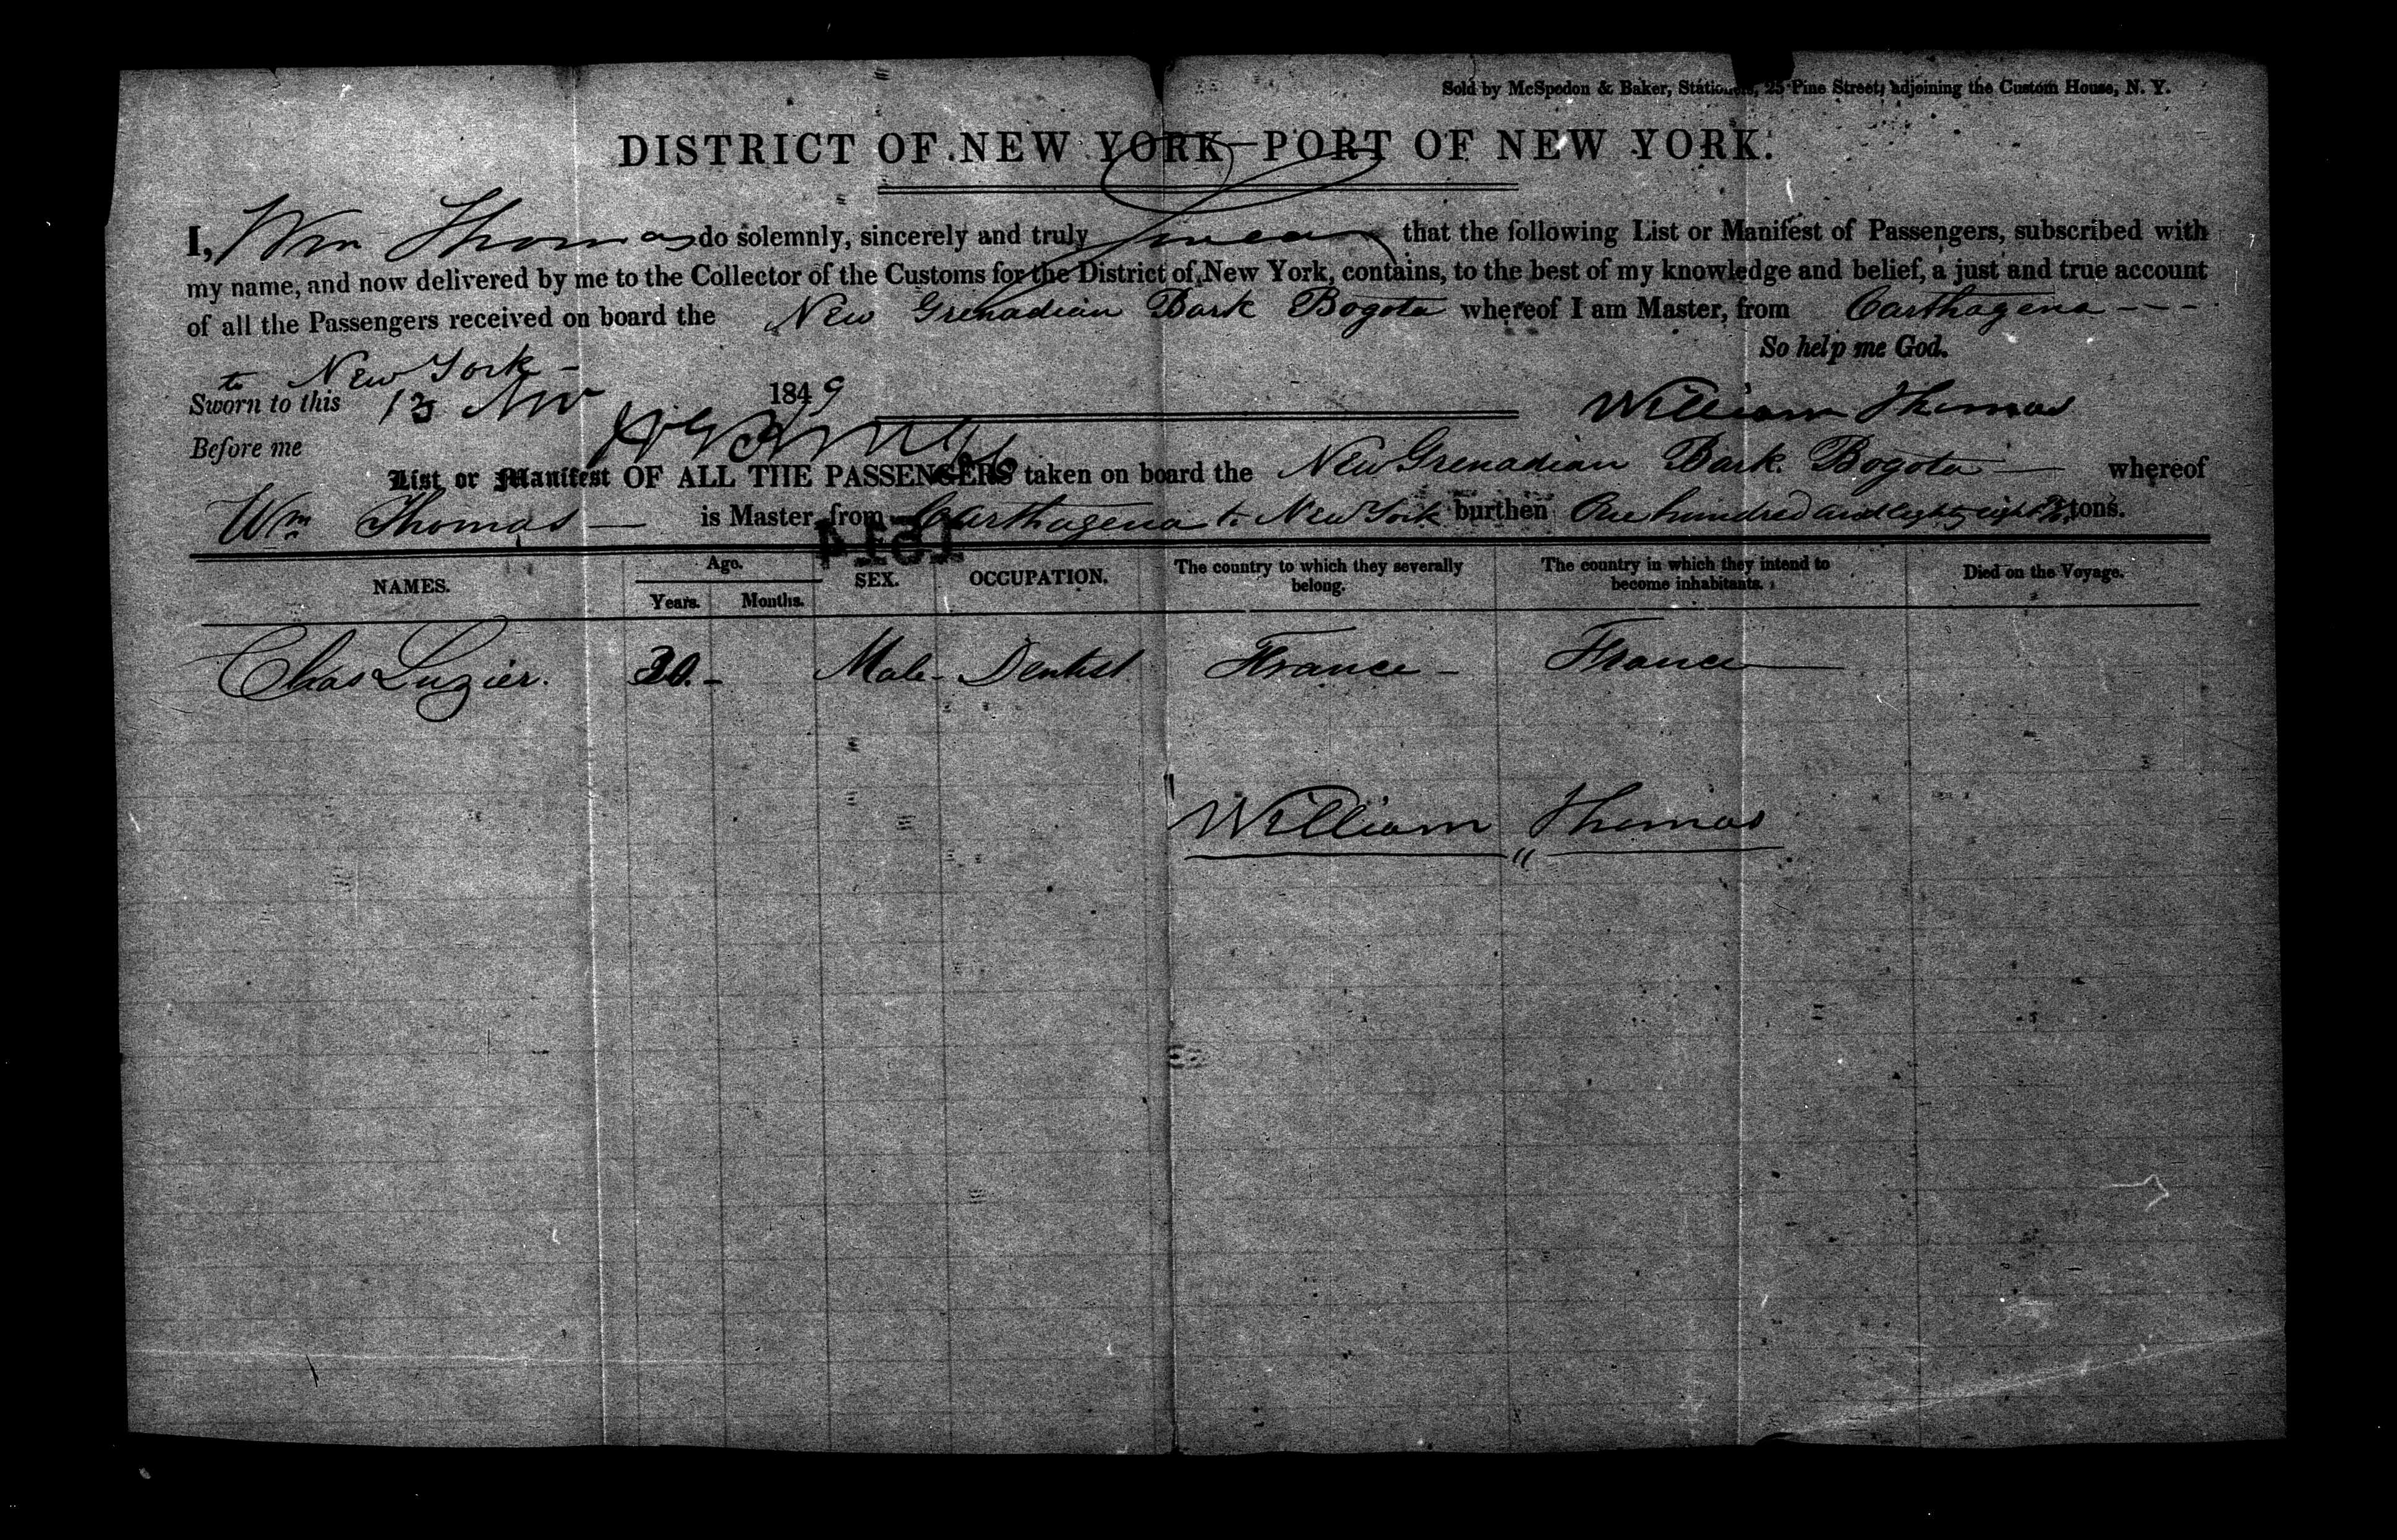 Sold by McSpedon & Baker, Stationers, 25 Pine Street, adjoining the Custom House, N. Y.
DISTRICT OF NEW YORK—PORT OF NEW YORK.
I, Wm Thomas do solemnly, sincerely and truly swear that the following List or Manifest of Passengers, subscribed with
my name, and now delivered by me to the Collector of the Customs for the District of New York, contains, to the best of my knowledge and belief, a just and true account
of all the Passengers received on board the New Grenadian Bark Bogota whereof I am Master, from Carthagena - - -
to New York - So help me God.
Sworn to this 13 Nov 1849 William Thomas
Before me
List or Manifest OF ALL THE PASSENGERS taken on board the New Grenadian Bark Bogota — whereof
Wm Thomas — is Master, from Carthagena to New York burthen One hundred and eighty eight tons.
NAMES. Age. Years. Months. SEX. OCCUPATION. The country to which they severally belong. The country in which they intend to become inhabitants. Died on the Voyage.
Chas Luzier. 30.- Male- Dentist France - France
William Thomas